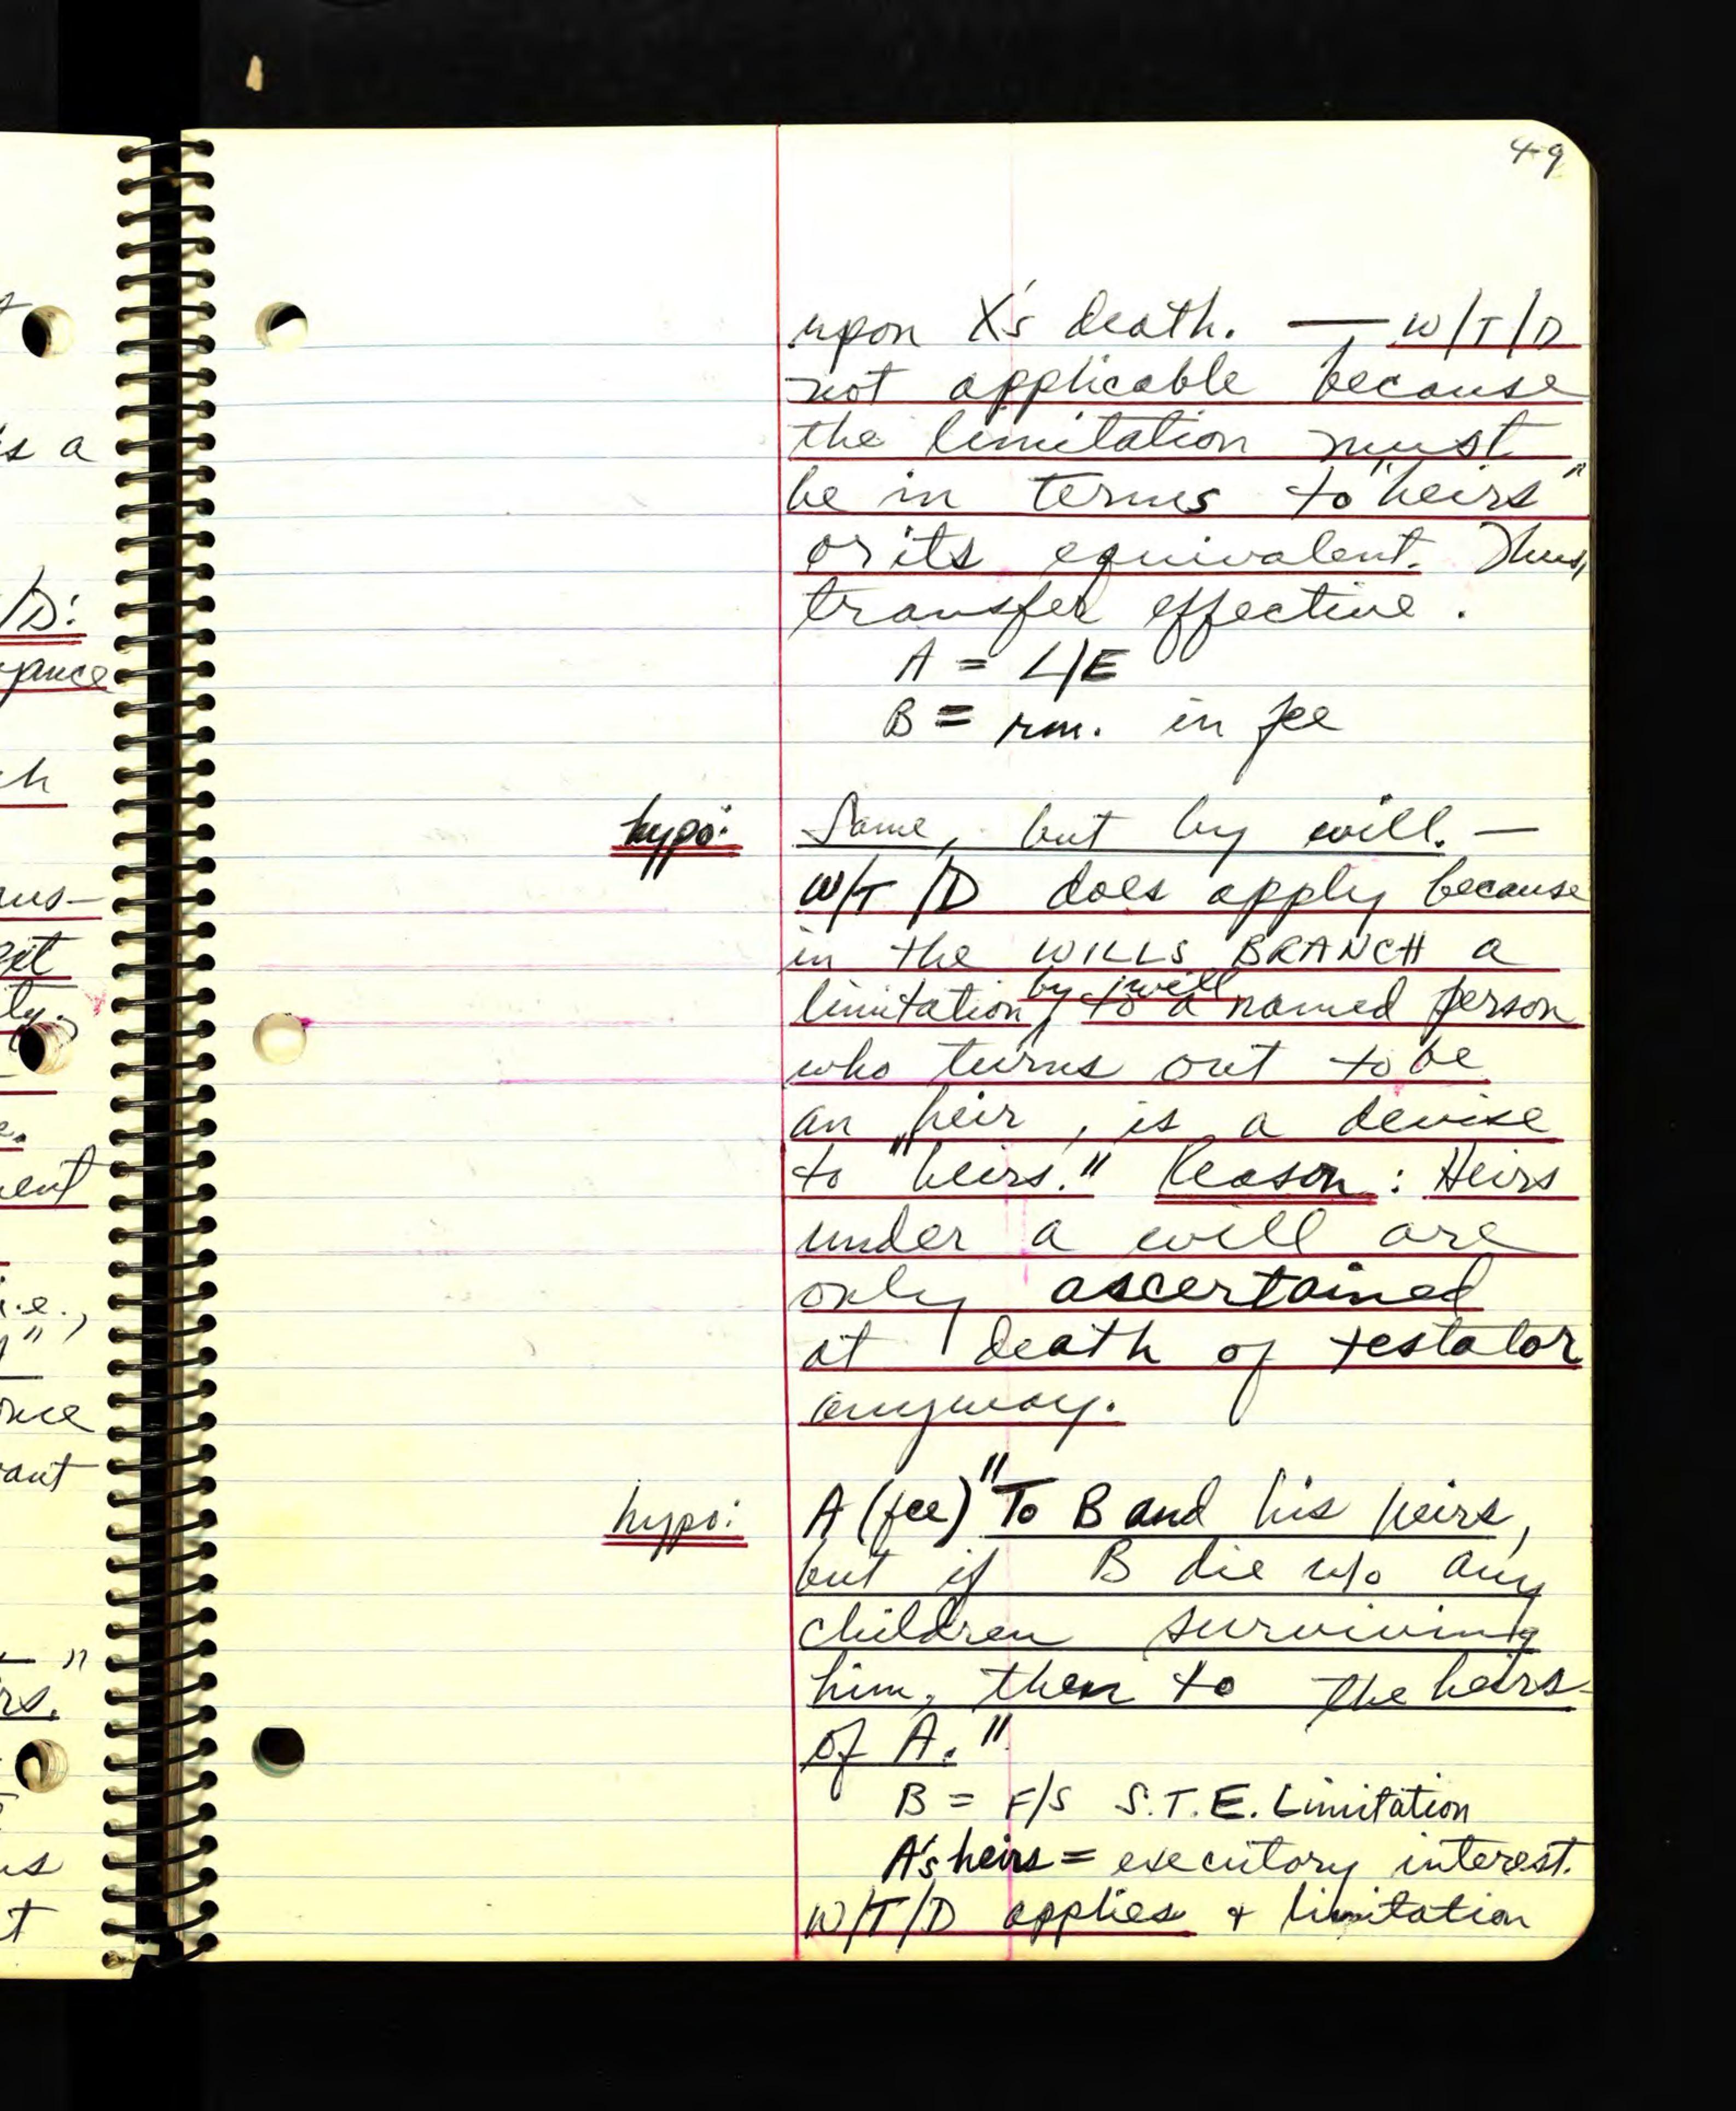 49
upon X's death. — W/T/D
not applicable because
the limitation must
be in terms to "heirs"
or its equivalent. Thus,
transfer effective.
A = L/E
B = rm. in fee
hypo: Same, but by will. —
W/T/D does apply because
in the WILLS BRANCH a
limitation, by will to a named person
who turns out to be
an heir, is a devise
to "heirs." Reason: Heirs
under a will are
only ascertained
at death of testator
anyway.
hypo: A (fee) "To B and his heirs,
but if B die w/o any
children surviving
him, then to the heirs
of A."
B = F/S S.T.E. Limitation
A's heirs = executory interest.
W/T/D applies + limitation
s a
/D:
yance
ch
ly.
e.
ent
i.e.,
"
rs.